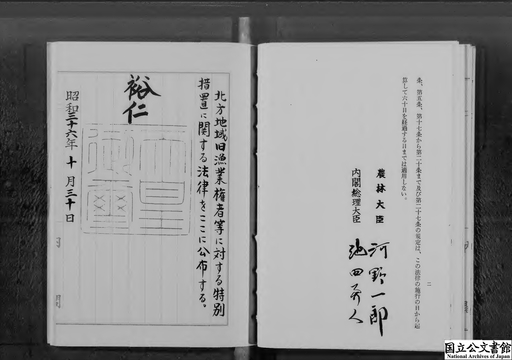 条、第五条、第十七条から第二十条まで及び第二十七条の規定は、この法律の施行の日から起
算して六十日を経過する日までは適用しない。
農林大臣 河野一郎
内閣総理大臣 池田勇人
二
北方地域旧漁業権者等に対する特別
措置に関する法律をここに公布する。
裕仁
天皇御璽
昭和三十六年十月三十日
国立公文書館
National Archives of Japan